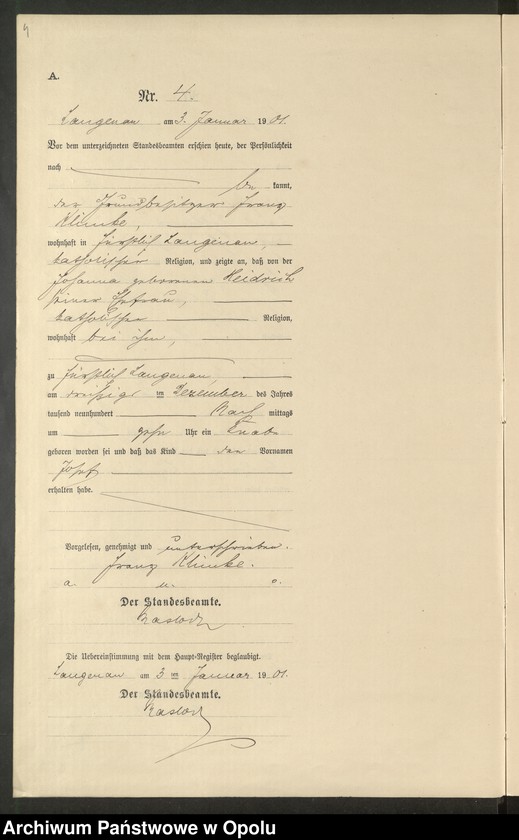 9
A.
Nr. 4.
Langenau am 3. Januar 1901.
Vor dem unterzeichneten Standesbeamten erschien heute, der Persönlichkeit
nach
be kannt,
der Grundbesitzer Franz
Klimke,
wohnhaft in Fürstlich Langenau,
katholischer Religion, und zeigte an, daß von der
Johanna geborenen Heidrich
seiner Ehefrau,
katholischer Religion,
wohnhaft bei ihm,
zu Fürstlich Langenau,
am dreißig ten Dezember des Jahres
tausend neunhundert Nach mittags
um zehn Uhr ein Knabe
geboren worden sei und daß das Kind den Vornamen
Josef
erhalten habe.
Vorgelesen, genehmigt und unterschrieben.
Franz Klimke.
a. u. o.
Der Standesbeamte.
Die Uebereinstimmung mit dem Haupt-Register beglaubigt.
Langenau am 3 ten Januar 1901.
Der Standesbeamte.
Archiwum Państwowe w Opolu